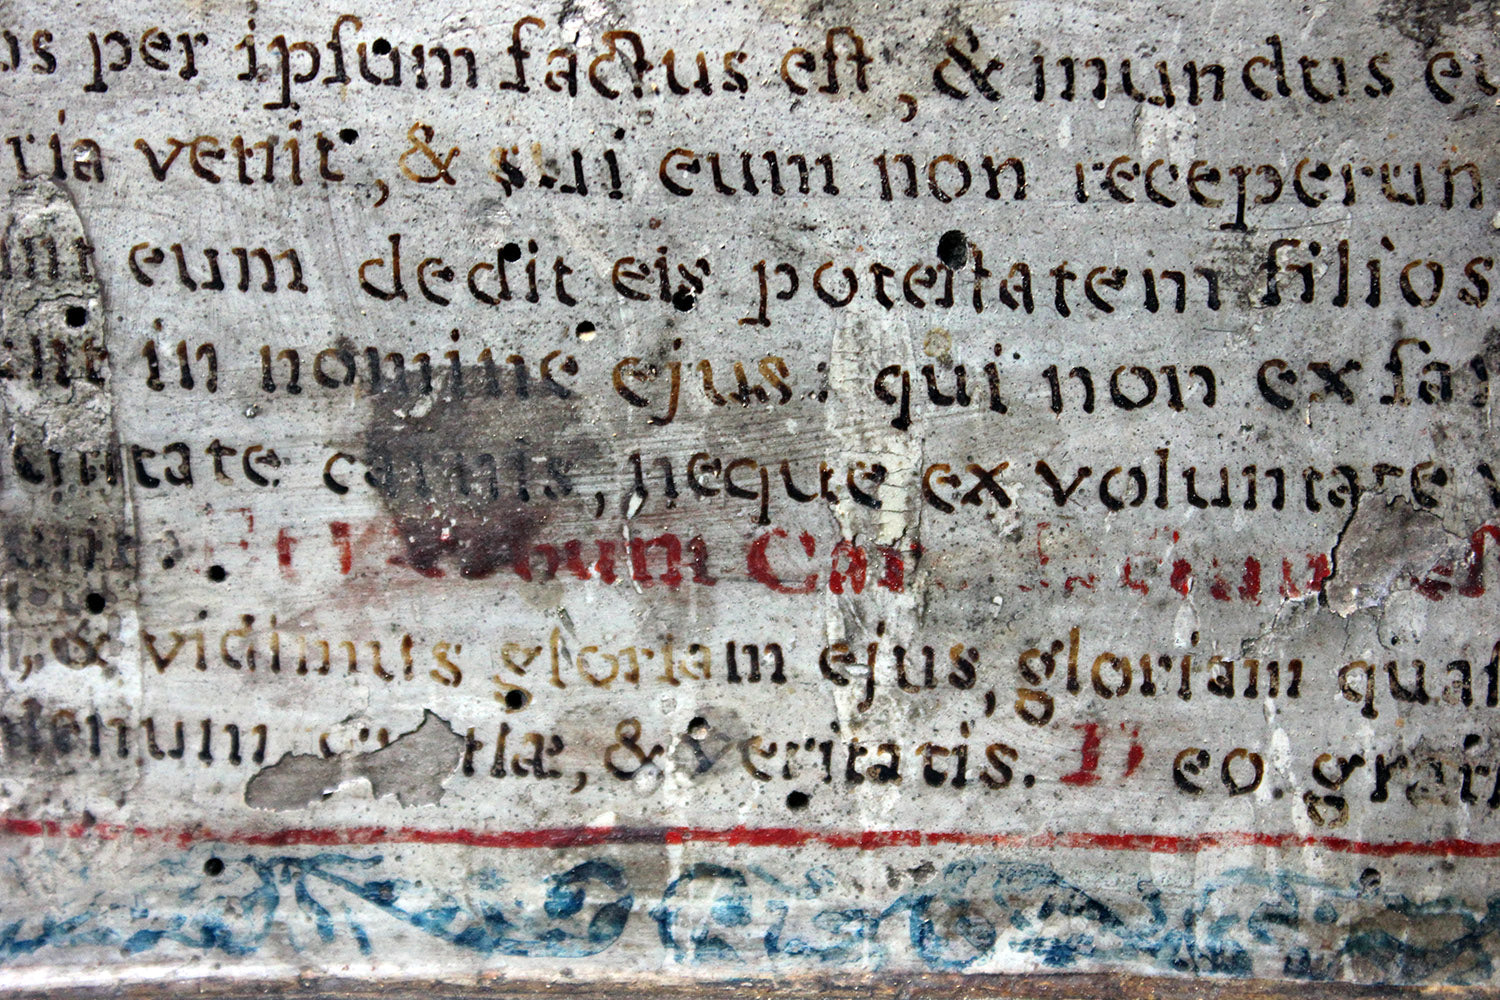 us per ipſum factus eſt, & mundus eu
ria venit, & sui eum non receperun
unt eum dedit eis poteſtatem filios
unt in nomine ejus: qui non ex ſa
untate carnis, neque ex voluntate v
Et Verbum Car eſ
, & vidimus gloriam ejus, gloriam quaſ
plenum tiæ, & veritatis. Deo grati